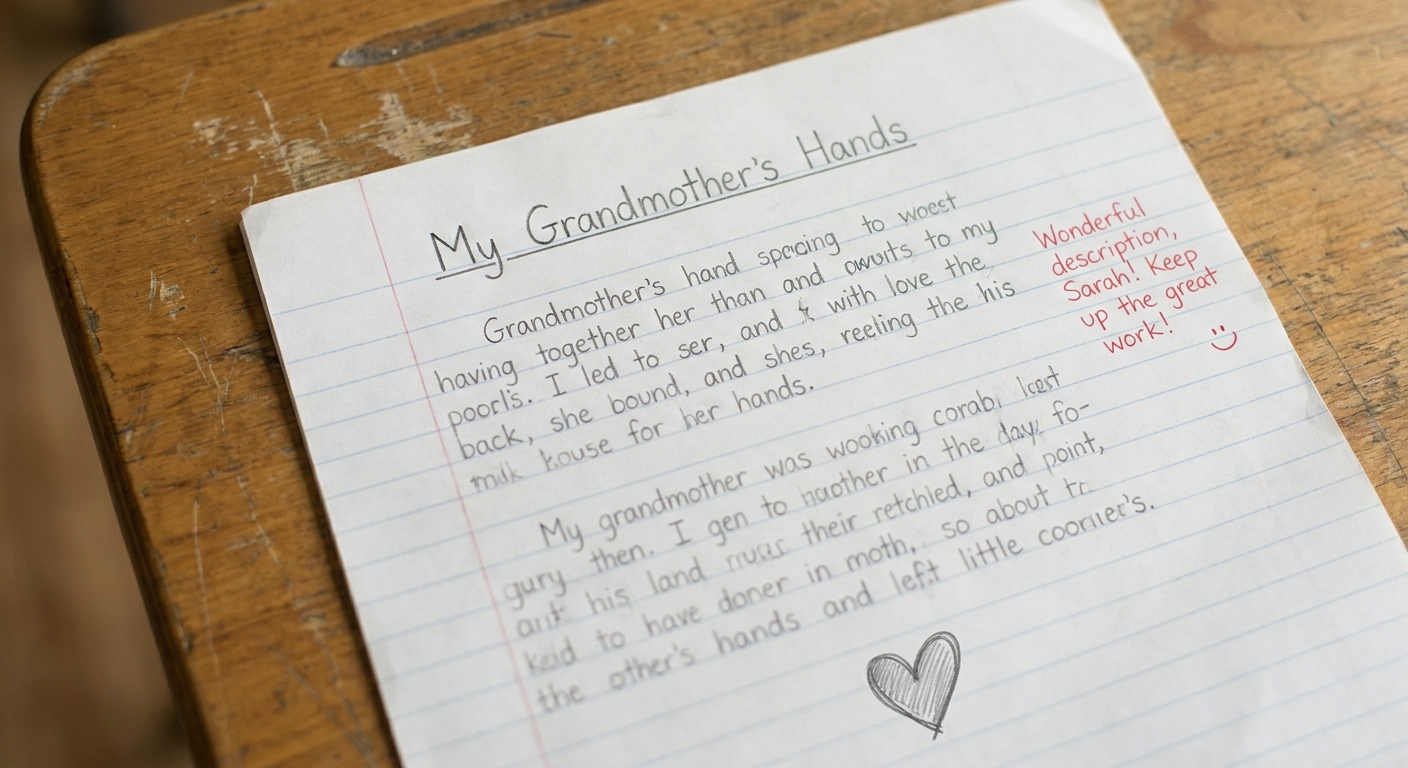 My Grandmother's Hands
Grandmother's hand specing to woest
having together her than and to my
poorls. I led to ser, and with love the
back, she bound, and shes, reeling the his
milk house for her hands.
My grandmother was wooking corab,
gury then. I gen to in the day, fo-
his land their retchled, and point,
to have doner in moth, so about
the other's hands and left little
Wonderful
description,
Sarah! Keep
up the great
work!